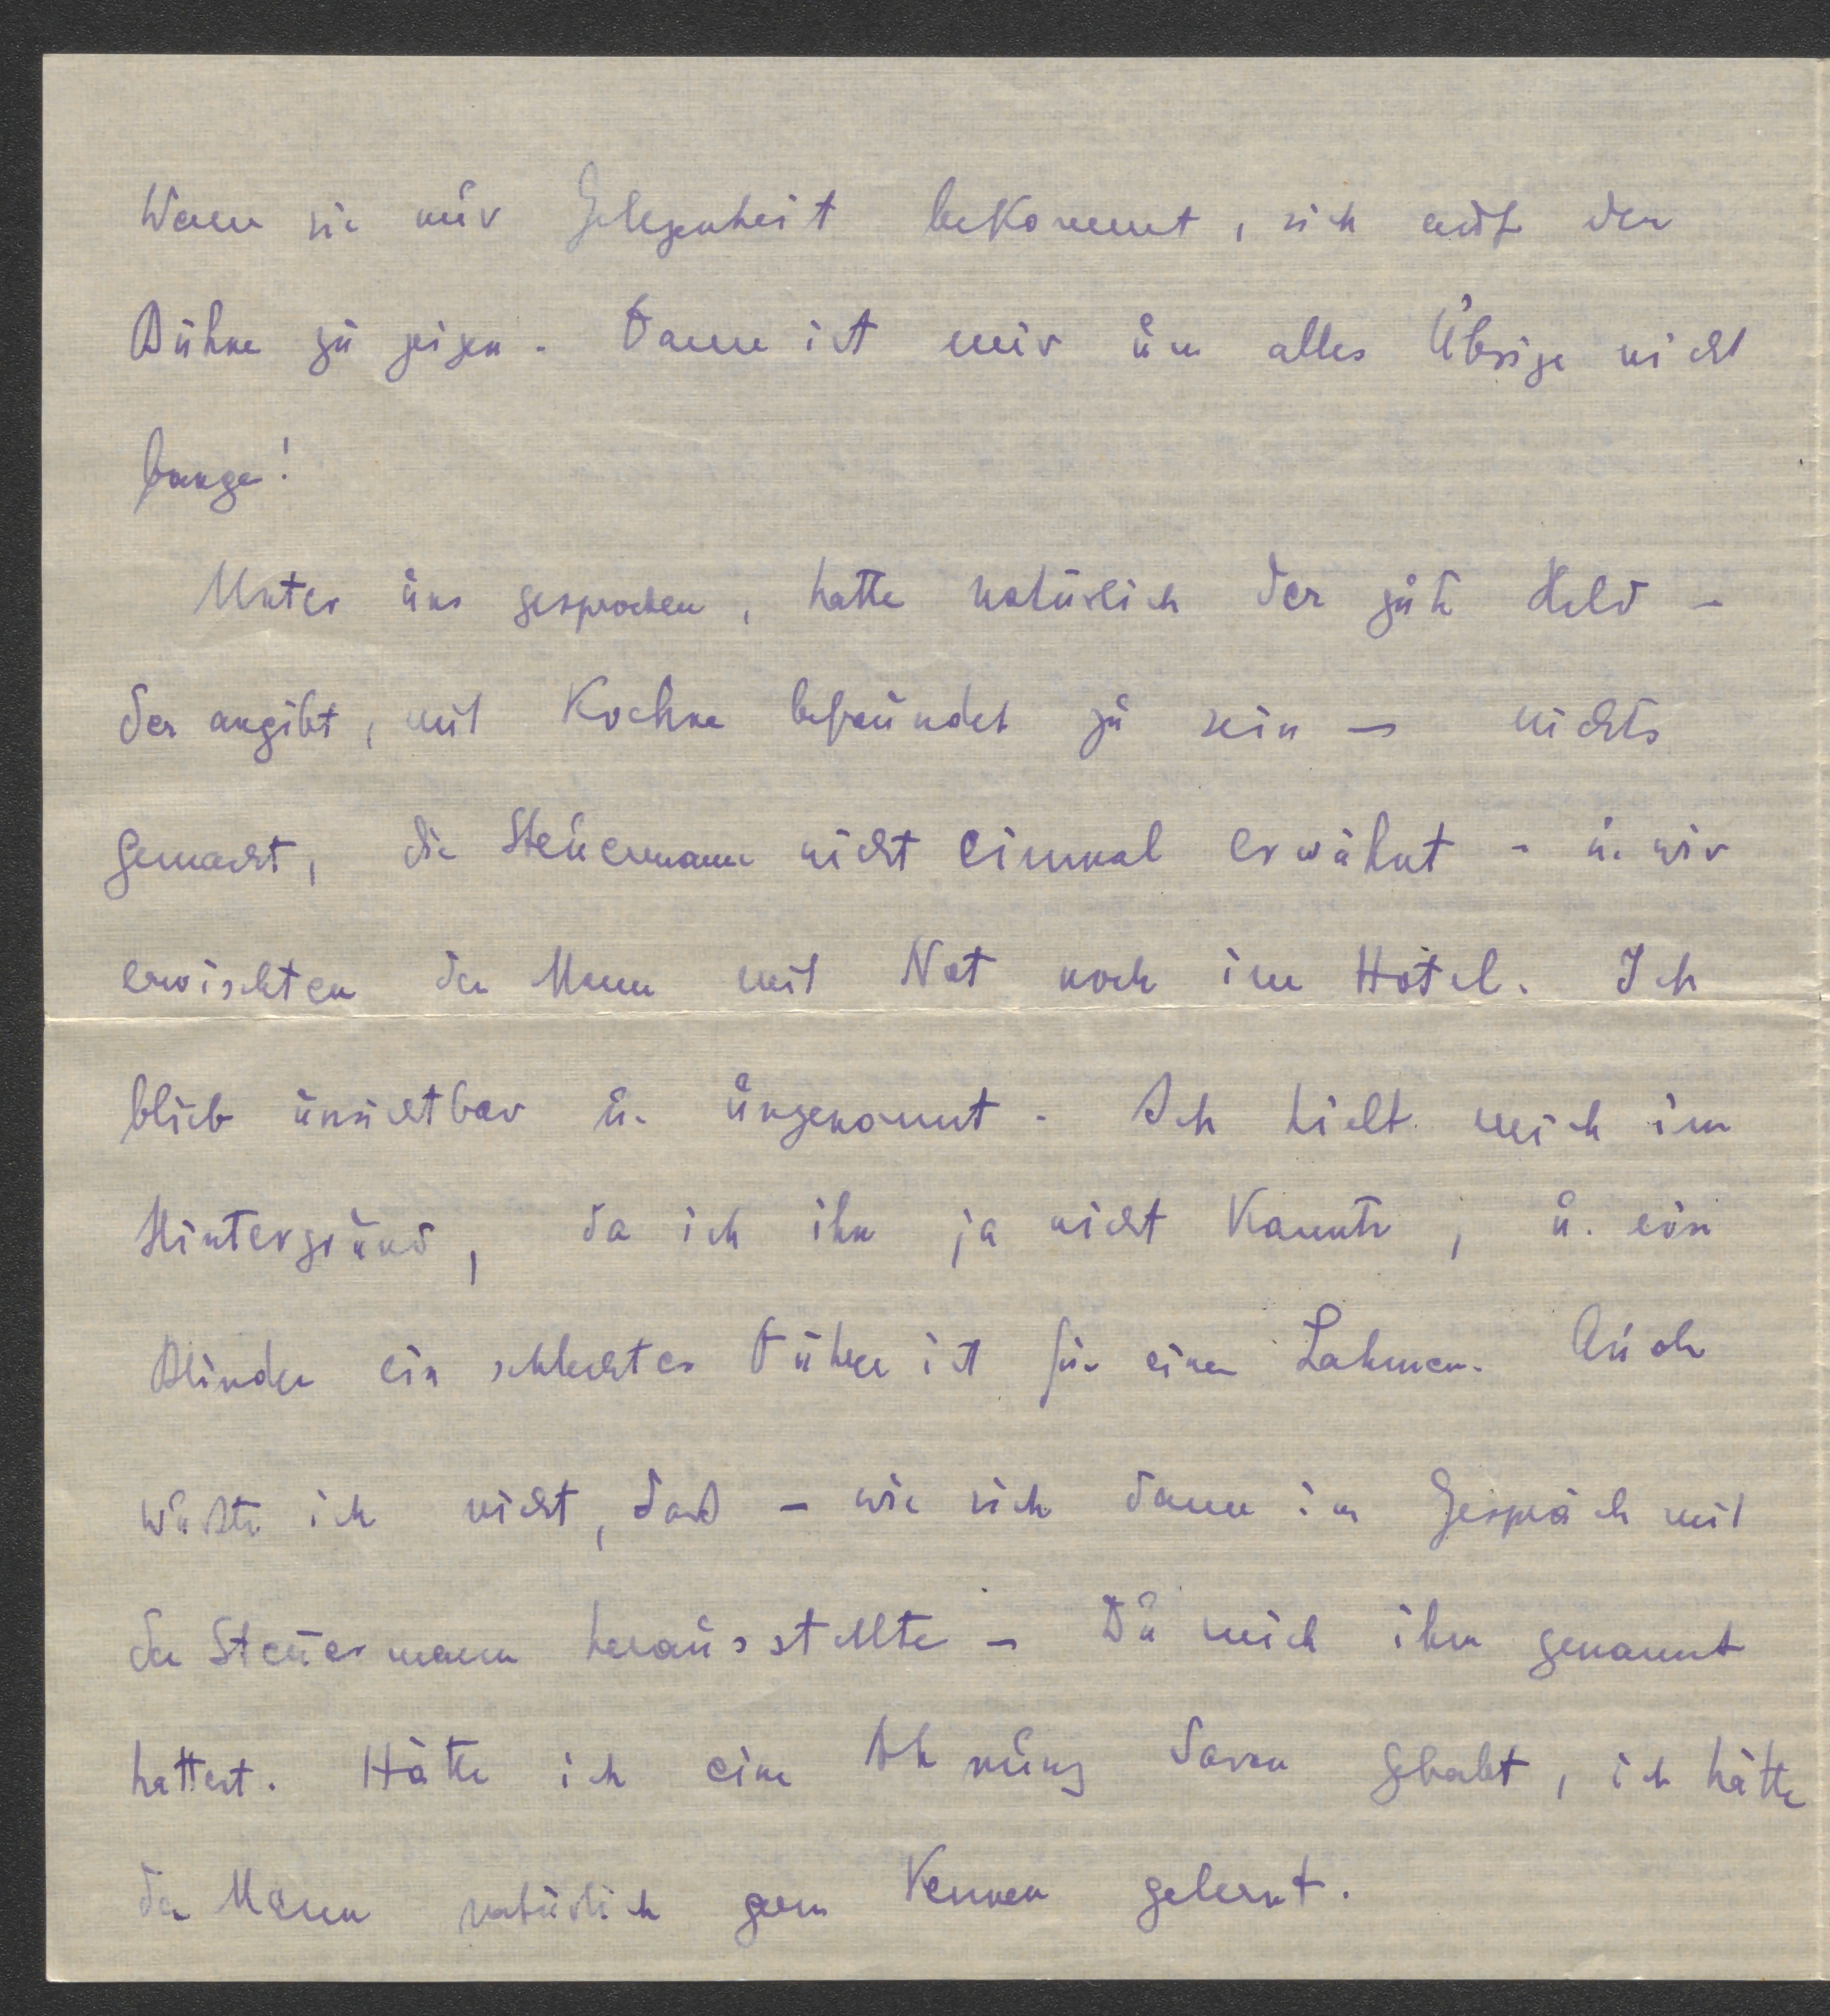 Wenn sie nur Gelegenheit bekommt, sich auf der
Bühne zu zeigen. Dann ist mir um alles Übrige nicht
bange!
Unter uns gesprochen, hatte natürlich der gute Held –
der angibt, mit Kochne befreundet zu sein – nichts
gemacht, die Steuermann nicht einmal erwähnt – u. wir
erwischten den Mann mit Not noch im Hotel. Ich
blieb unsichtbar u. ungenannt. Ich hielt mich im
Hintergrund, da ich ihn ja nicht kannte, u. ein
Blinder ein schlechter Führer ist für einen Lahmen. Auch
wußte ich nicht, daß – wie sich dann im Gespräch mit
der Steuermann herausstellte – Du mich ihm genannt
hattest. Hätte ich eine Ahnung davon gehabt, ich hätte
den Mann natürlich gern kennen gelernt.